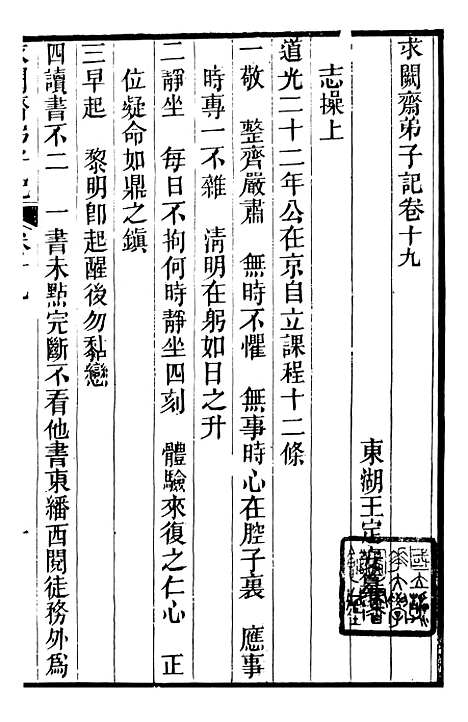 求闕齋弟子記卷十九
東湖王定安
志操上
道光二十二年公在京自立課程十二條
一敬　整齊嚴肅　無時不懼　無事時心在腔子裏　應事
時專一不雜　淸明在躬如日之升
二靜坐　每日不拘何時靜坐四刻　體驗來復之仁心　正
位凝命如鼎之鎮
三早起　黎明卽起醒後勿黏戀
四讀書不二　一書未點完斷不看他書東繙西閱徒務外爲